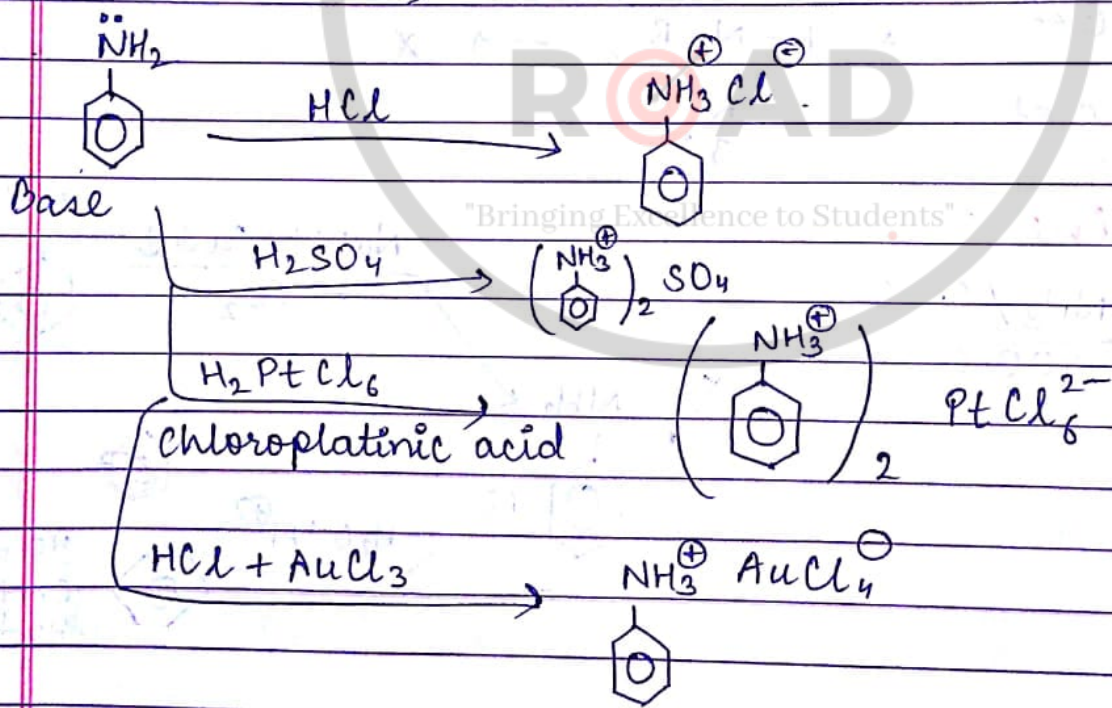 N̈H₂
HCl
NH₃⊕ Cl⊖ .
ROAD
Base
"Bringing Excellence to Students"
H₂SO₄
(NH₃⊕)₂ SO₄
H₂PtCl₆
(NH₃⊕)₂ PtCl₆²⁻
Chloroplatinic acid .
HCl + AuCl₃
NH₃⊕ AuCl₄⊖